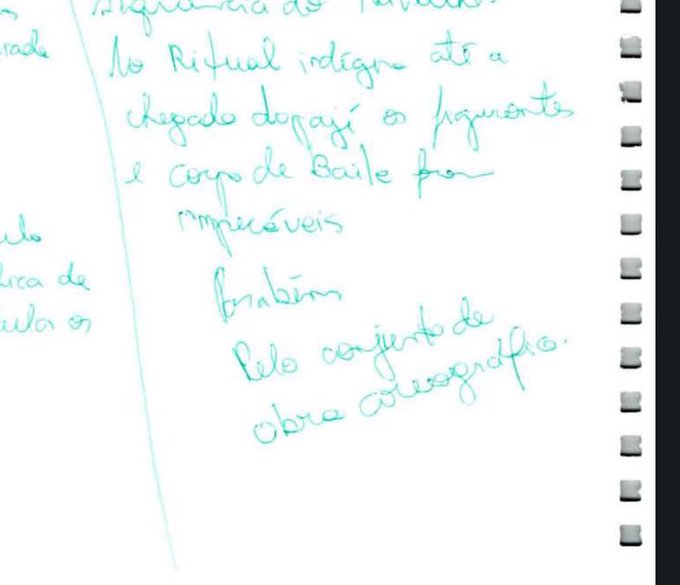 rada
No Ritual indígena até a
chegada do pajé os figurantes
e corpo de Baile foram
impecáveis
Parabéns
Pelo conjunto de
obra coreográfica.
ica de
os